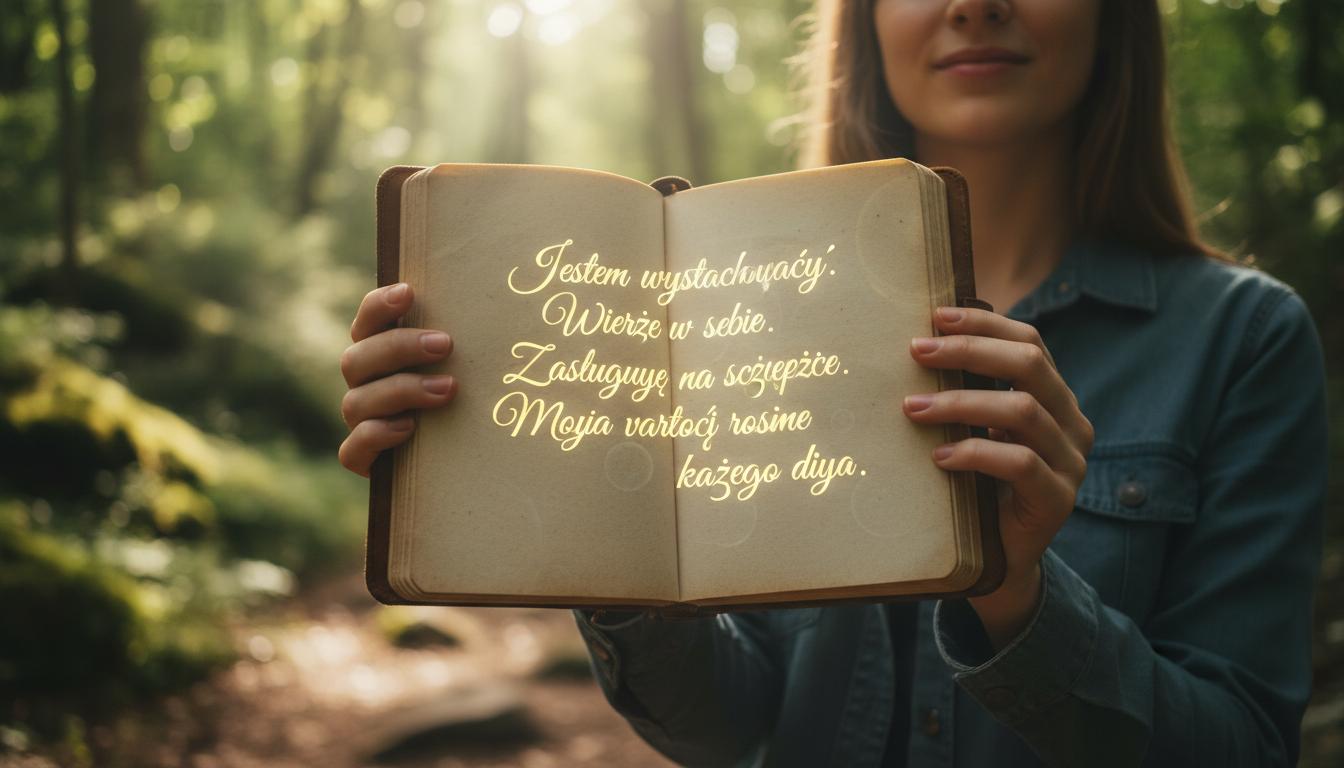 Jestem wystachuąćy.
Wierże w sebie.
Zasługuyę na scziępżce.
Moyia vartoćj rosine
każego diya.